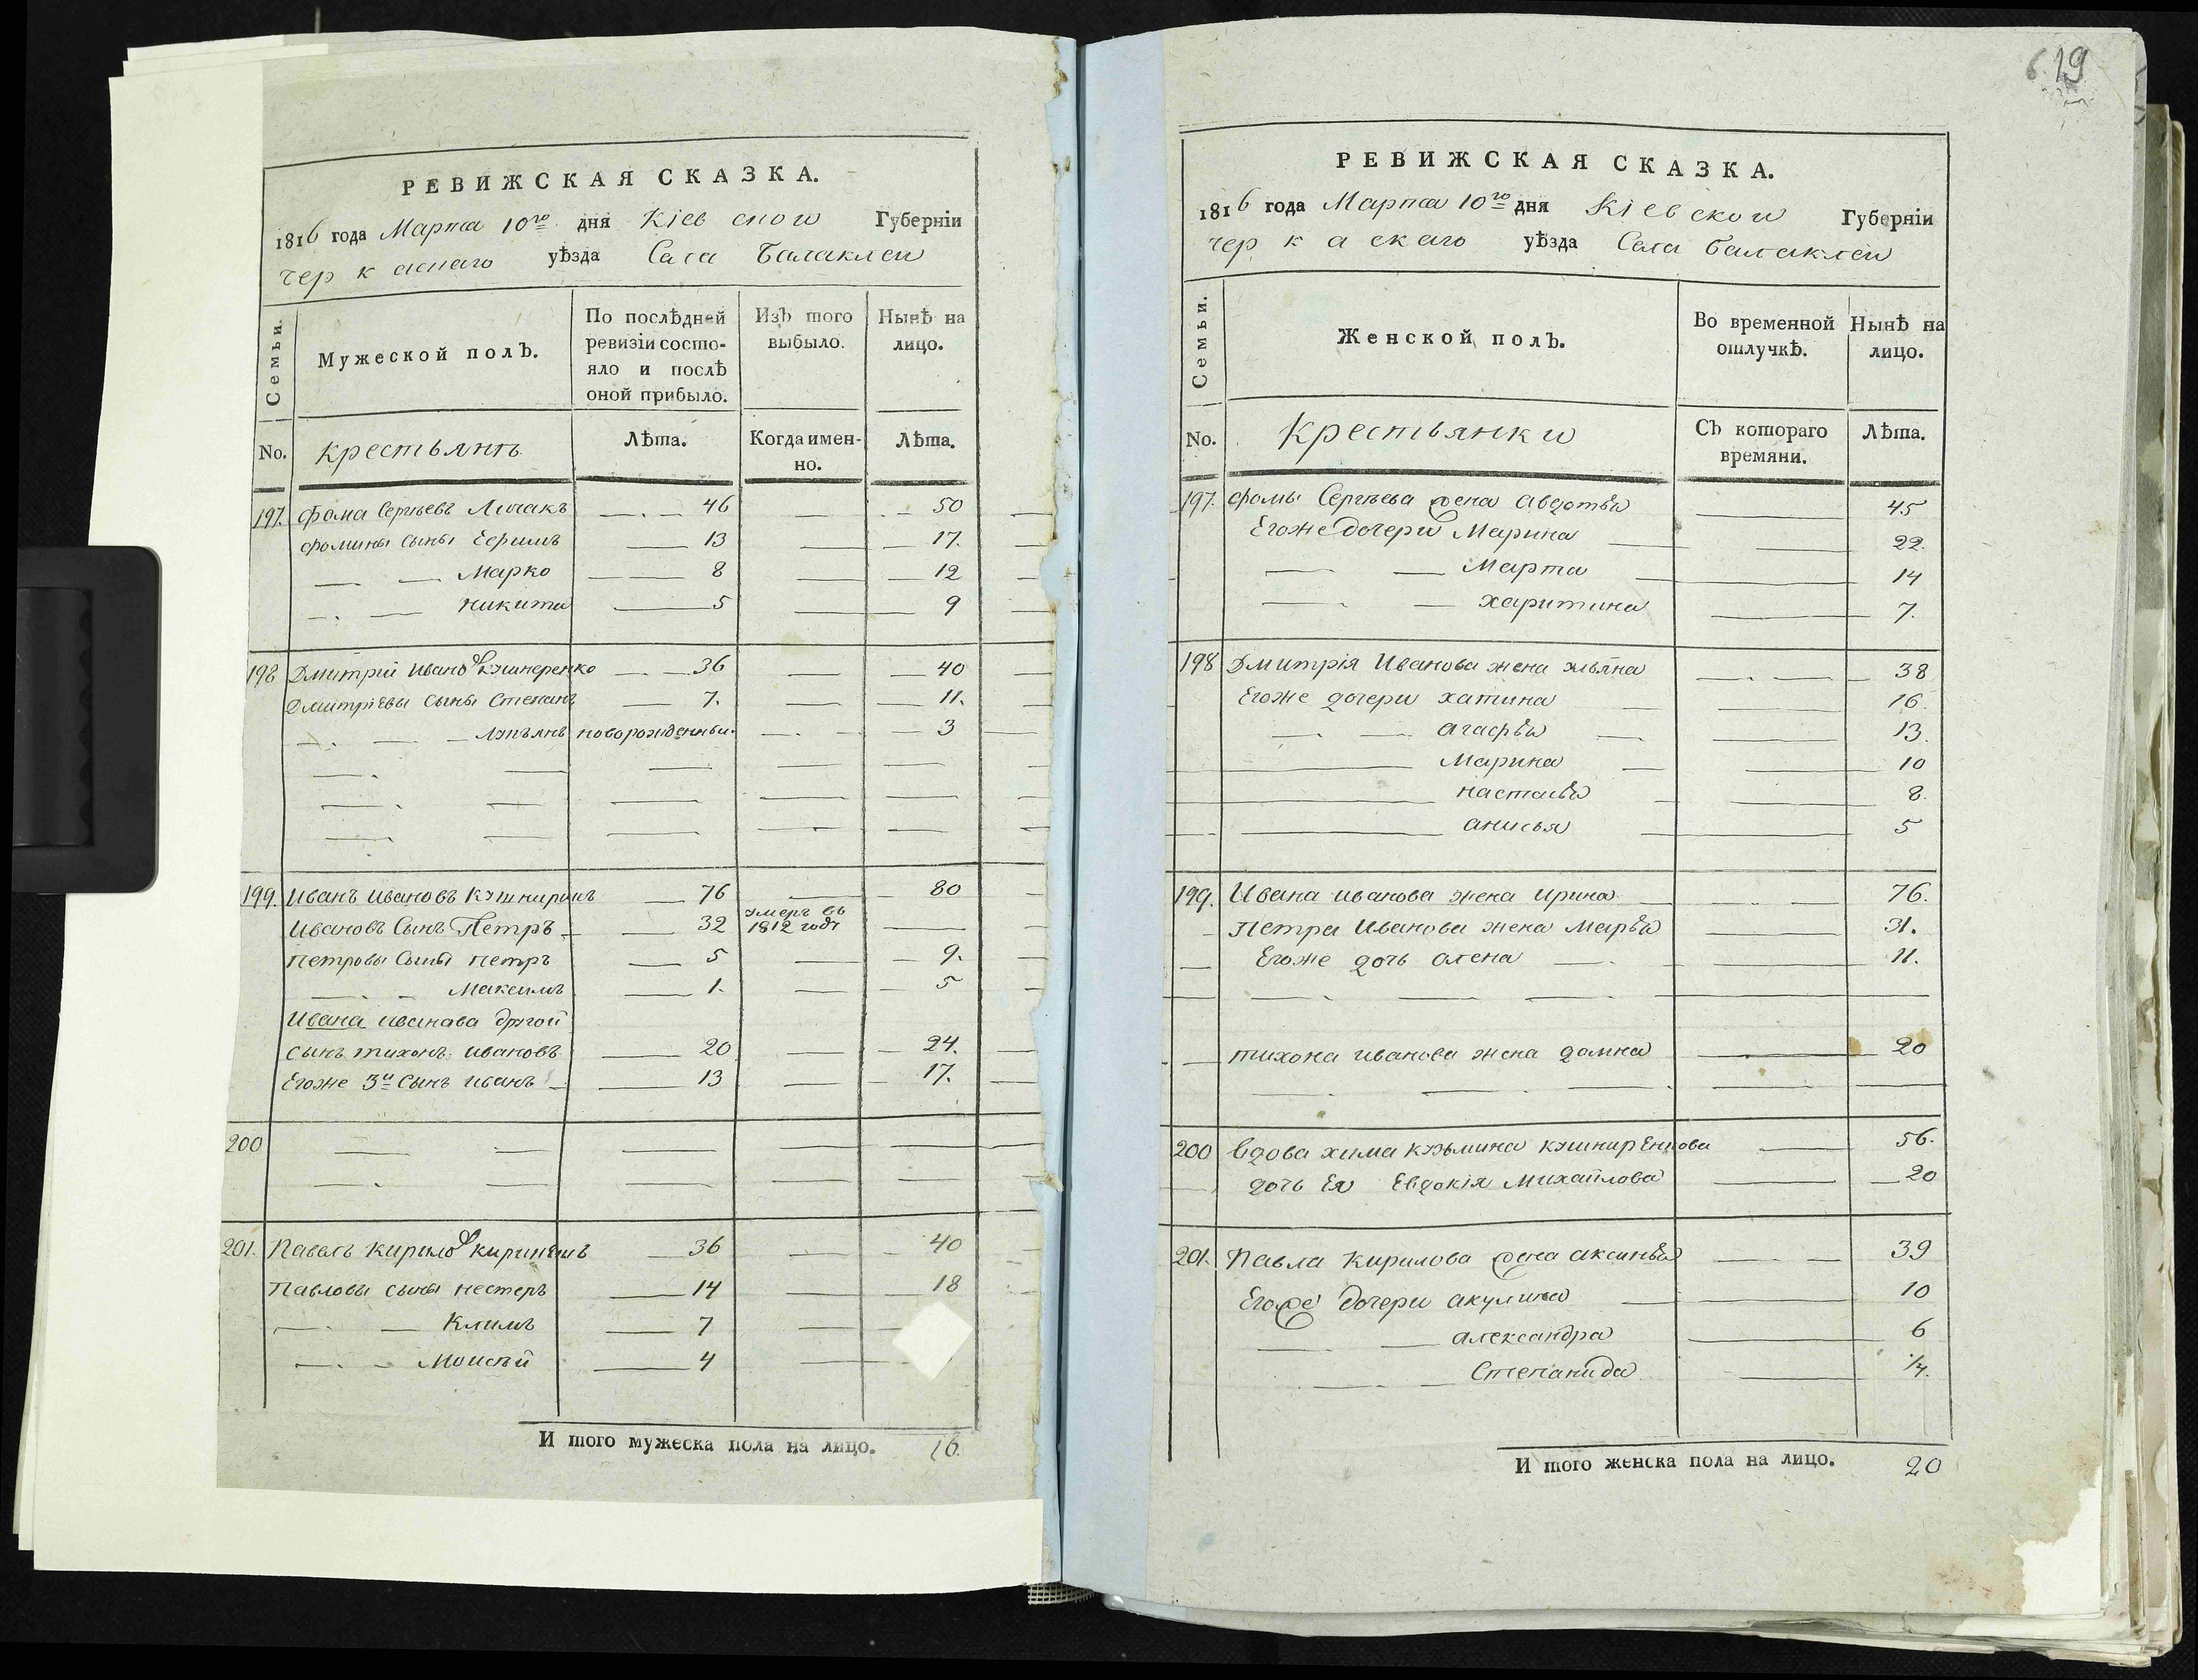 РЕВИЖСКАЯ СКАЗКА.
1816 года Марта 10го дня Кіевской Губерніи
черкаскаго уѣзда Села Балаклеи
Семьи.
Мужеской полъ.
По послѣдней ревизіи состояло и послѣ оной прибыло.
Изъ того выбыло.
Нынѣ на лицо.
No. крестьянъ Лѣта. Когда именно. Лѣта.
197. Фома Сергѣевъ Личакъ 46 50
Фомины Сыны Ефимъ 13 17.
Марко 8 12
Никита 5 9
198 Дмитрій Иванов Кушнеренко 36 40
Дмитріевы Сыны Степанъ 7. 11.
Лукьянъ новорожденный 3
199. Иванъ Ивановъ Кушниринъ 76 80
Ивановъ Сынъ Петръ 32 умеръ въ 1812 годѣ
Петровы Сыны Петръ 5 9.
Максимъ 1. 5
Ивана Иванава другой
сынъ тихонъ Ивановъ 20 24.
Егоже 3й Сынъ Иванъ 13 17.
200
201. Павелъ Кирилов 36 40
Павловы сыны Нестеръ 14 18
Климъ 7
Моисѣй 4
И того мужеска пола на лицо. 16.
619
РЕВИЖСКАЯ СКАЗКА.
1816 года Марта 10го дня Кіевской Губерніи
черкаскаго уѣзда Села балаклеи
Семьи.
Женской полъ.
Во временной отлучкѣ.
Нынѣ на лицо.
No. Крестьянки Съ котораго времяни. Лѣта.
197. Фомы Сергѣева жена Авдотья 45
Егоже дочери Марина 22.
Марта 14
харитина 7.
198 Дмитрія Иванова жена 38
Егоже дочери хатина 16.
агафья 13.
Марина 10
настасья 8.
анисья 5
199. Ивана иванова жена Ирина 76.
Петра Иванова жена Марья 31.
Егоже дочь олена 11.
тихона иванова жена домна 20
200 вдова хима кузьмина кушниренкова 56.
дочь Ея Евдокія Михайлова 20
201. Павла Кирилова жена аксинья 39
Егоже дочери акулина 10
александра 6
Степанида 1/4.
И того женска пола на лицо. 20